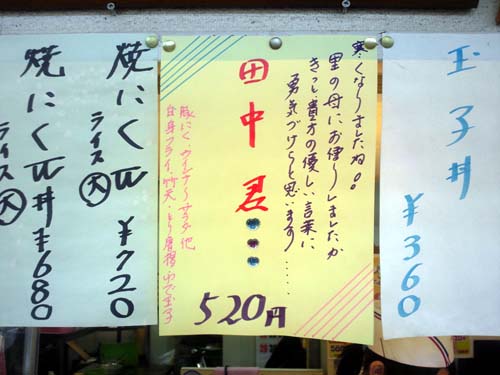 玉子丼
¥360
寒くなりましたね。。
里の母に、お便りしましたか
きっと、貴方の優しい言葉に
勇気づけらと思います……
田中君
豚にく、ウインナーサラダ他
白身フライ、竹天、とり唐揚、ゆで玉子
520円
焼にくW
ライス大
¥720
焼にくW丼
ライス大
¥680